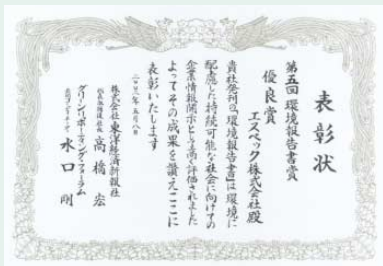 表彰状
第五回 環境報告書賞
優良賞
エスペック株式会社殿
貴社発刊の「環境報告書」は環境に
配慮した持続可能な社会に向けての
企業情報開示として高く評価されました
よってその成果を讃えここに
表彰いたします
二〇〇二年五月八日
株式会社東洋経済新報社
代表取締役社長
高橋 宏
グリーンリポーティング・フォーラム
水口 剛